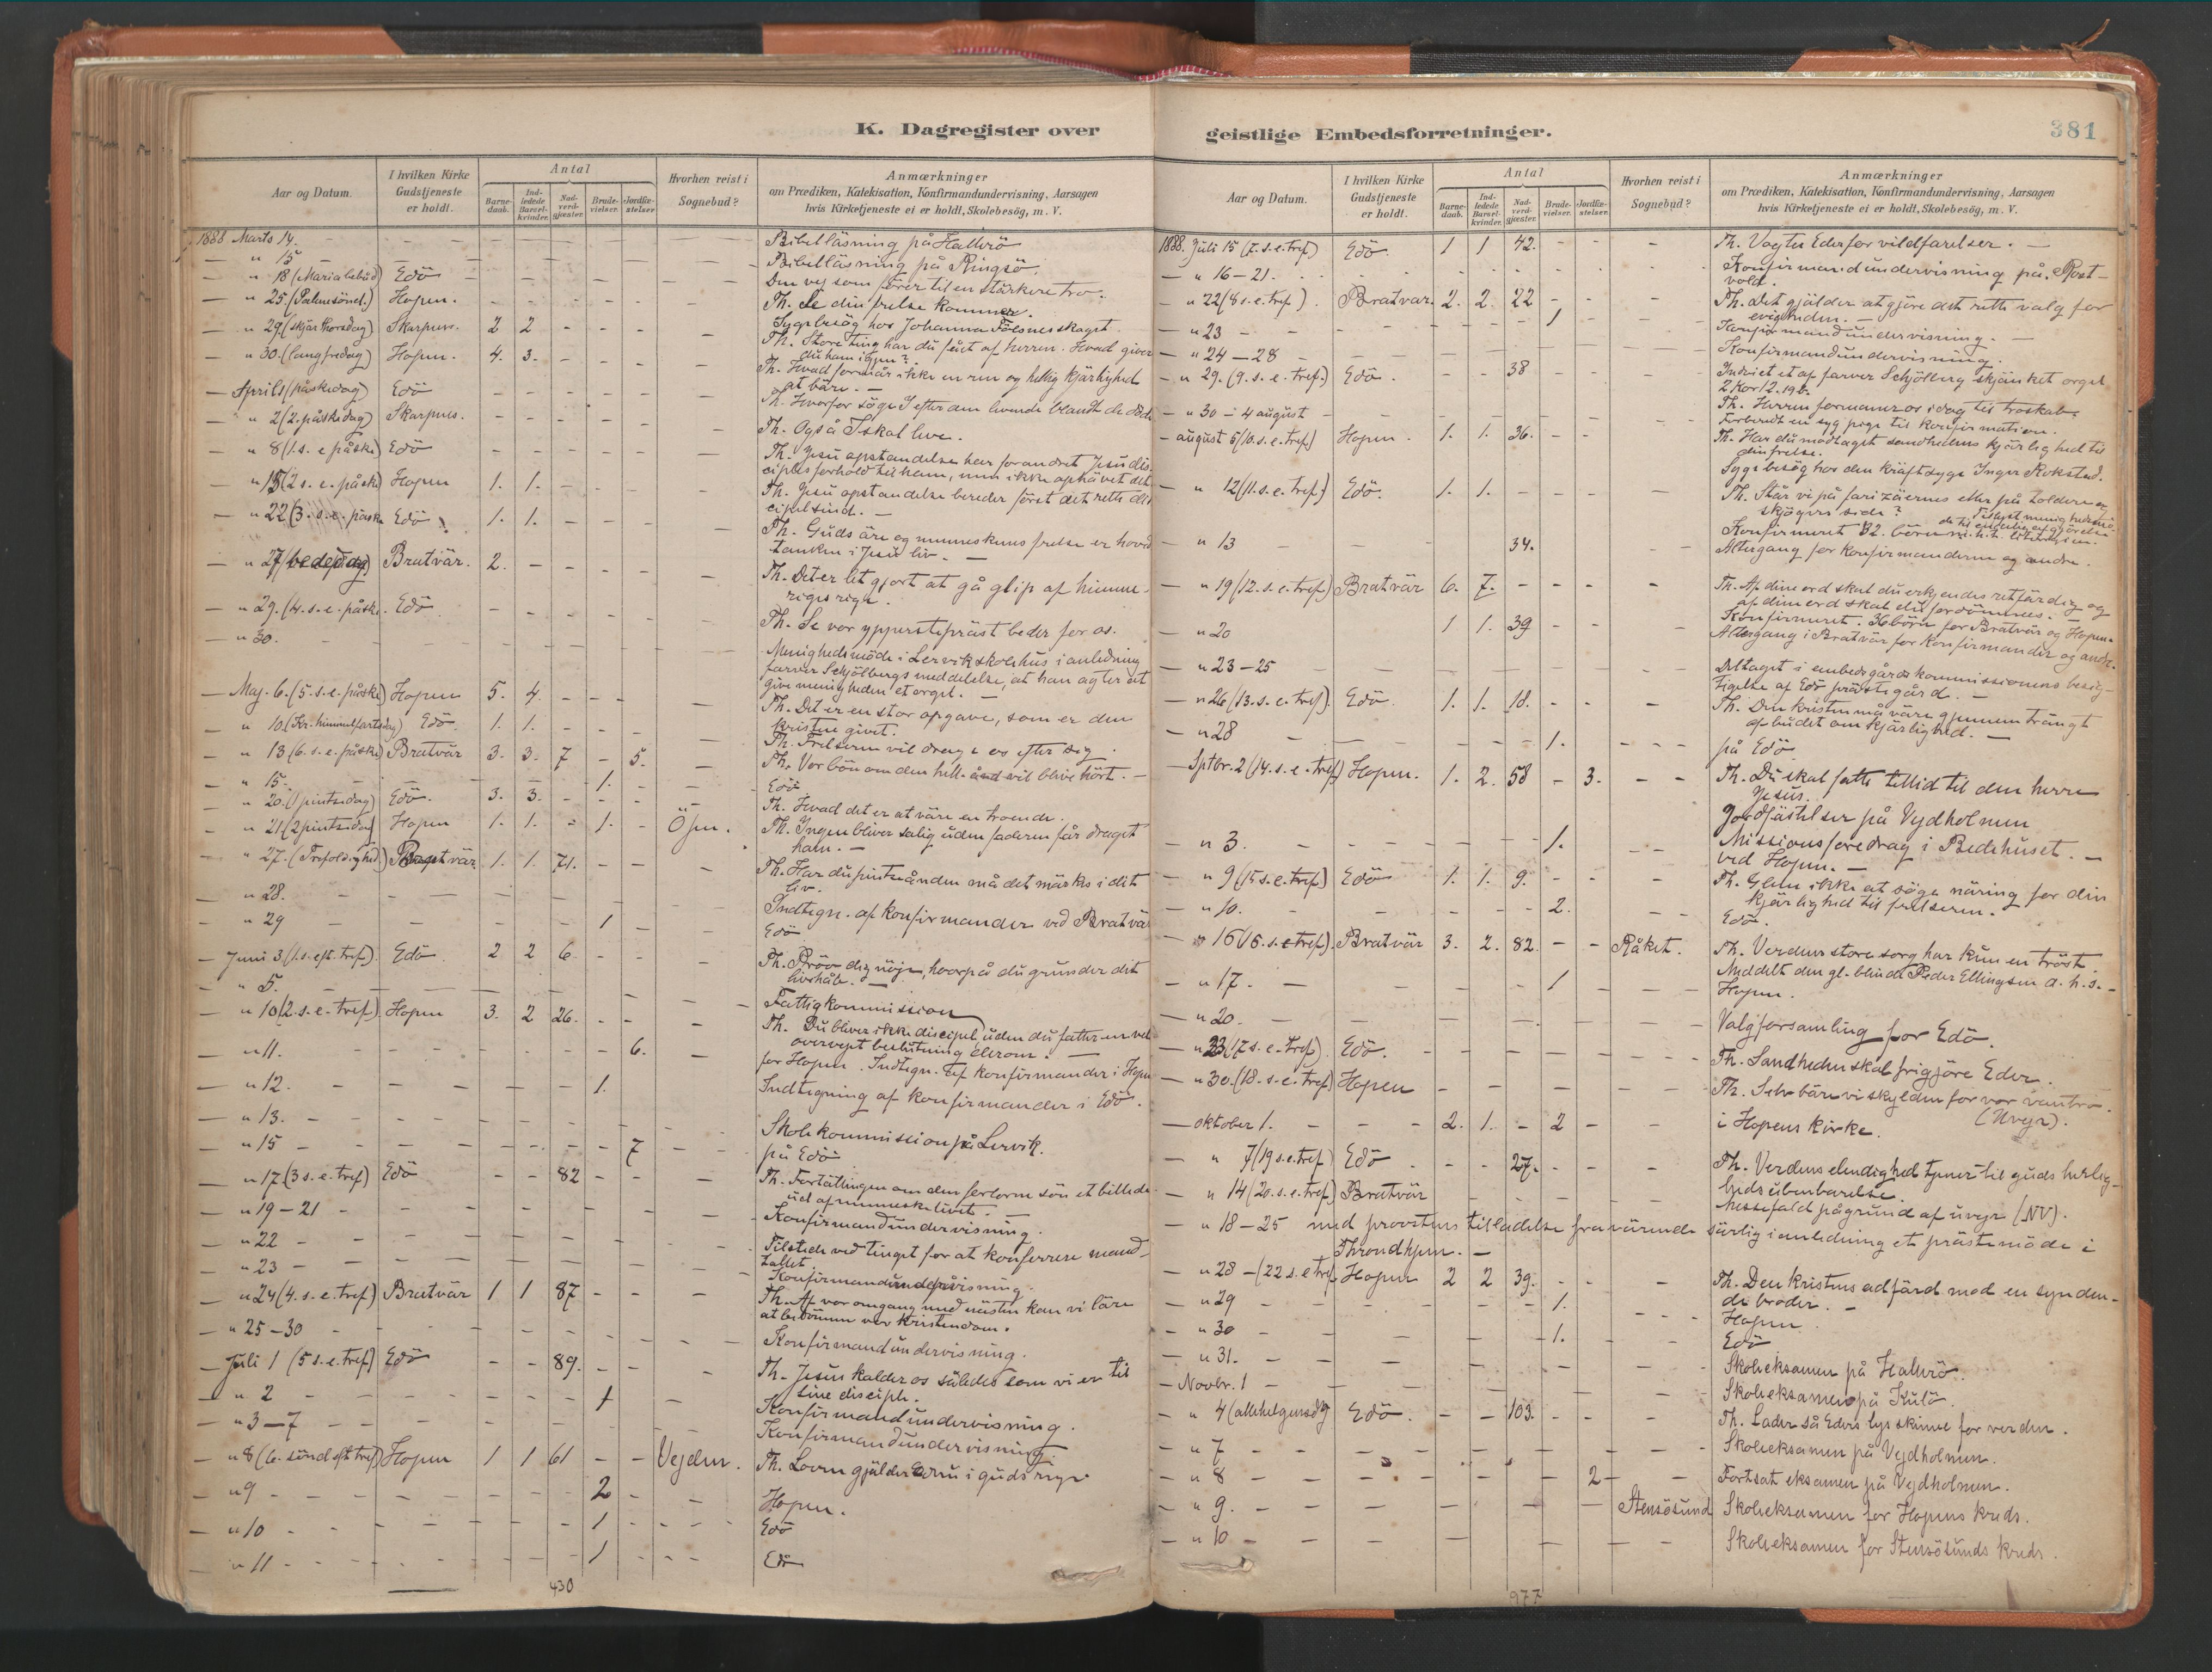 K. Dagregister over
Aar og Datum.
I hvilken Kirke Gudstjeneste er holdt.
Antal
Barnedaab.
Indledede Barselkvinder.
Nadverdgjæster.
Brudevielser.
Jordfæstelser.
Hvorhen reist i Sognebud?
Anmærkninger
om Prædiken, Katekisation, Konfirmandundervisning, Aarsagen
hvis Kirketjeneste ei er holdt, Skolebesög, m. V.
1888 Marts 14. Bibelläsning på Hallerö
— " 15 — Bibelläsning på Ringsö.
— " 18 (Mariabebud) Edö Den vej som förer til en stärkere tro.
— " 25. (Palmesönd.) Hopen. Th. Se din frelse kommer.
— " 29 (skjärthorsdag) Skarpnes. 2 2 Sygebesög hos Johanna
— " 30. (langfredag) Hopen. 4. 3. Th. Store ting har du fået af herren. Hvad giver
du ham igjen?
— April 1 (påskedag) Edö Th. Hvad formår ikke en ren og hellig kjärlighed
at bäre. —
— " 2 (2. påskedag) Skarpnes. Th. Hvorfor söge I efter den levende blandt de döde
— " 8 (1. s. e påske) Edö Th. Også I skal leve.
— " 15 (2 s. e. påske) Hopen 1. 1. Th. Jesu opstandelse har forandret Jesu dis-
ciples forhold til ham, men ikke ophävet det
— " 22 (3. s. e. påske Edö 1. 1. Th. Jesu opstandelse bereder först det rette dis-
cipelsind. —
— " 27 (bededag) Bratvär. 2. Th. Guds äre og menneskenes frelse er hoved
tanken i Jesu liv. —
— " 29. (4. s. e. påske. Edö Th. Det er let gjort at gå glip af himme-
riges rige.
— " 30. Th. Se vor ypperstepräst beder for os.
Menighedsmöde i Lervik skolehus i anledning
farver Schjölbergs meddelelse, at han agter at
give menigheden et orgel. —
— Maj. 6. (5. s. e. påske) Hopen 5. 4. Th. Det er en stor opgave, som er den
kristne givet.
" 10. (Kr. himmelfartsdag) Edö. 1. 1. Th. Frelseren vil drage os efter sig.
" 13 (6. s. e. påske) Bratvär 3. 3. 7 - 5. Th. Vor bön om den hell. ånd vil blive hört. —
" 15. 1. Edö.
" 20. (1 pintsedag) Edö. 3. 3. Th. Hvad det er at väre en troende.
" 21 (2 pintsedag) Hopen 1. 1. - 1. Öjen. Th. Ingen bliver salig uden faderen får draget
ham. —
" 27. (Trefoldighed.) Bratvär 1. 1. 71. Th. Har du pintseånden må det märkes i dit
liv.
— " 28. Indtegn. af konfirmander ved Bratvär
— " 29 1 Edö
— Juni 3 (1. s. eft. tref). Edö. 2 2 6 Th. Pröv dig nöje, hvorpå du grunder dit
livshåb. —
— " 5. Fattigkommission
— " 10 (2. s. e. tref). Hopen 3. 2 26. Th. Du bliver ikke discipel, uden du fatter en vel
overvejet beslutning derom. —
— " 11. 6. for Hopen. Indtegn. af konfirmander i Hopen
— " 12. 1. Indtegning af konfirmander i Edö.
— " 13.
— " 15 7 Skolekommission på Lervik.
på Edö
— " 17. (3 s. e. tref) Edö 82 Th. Fortällingen om den fortorne sön et billede
ud af menneskelivet. —
— " 19–21 Konfirmandundervisning.
— " 22 Tilstede ved tinget for at konferrere mand-
tallet.
— " 23 Konfirmandundervisning.
— " 24 (4. s. e. tref) Bratvär 1 1 87 Th. Af vor omgang med nästen kan vi lære
at bedömme vor kristendom.
— " 25–30 Konfirmandundervisning.
— Juli 1 (5 s. e. tref) Edö 89. Th. Jesus kalder os således som vi er til
sine disciple.
— " 2 1 Konfirmandundervisning.
— " 3–7 Konfirmandundervisning
— " 8 (6. sönd eft tref) Hopen 1 1 61 Vejden. Th. Loven gjälder endnu i guds rige.
— " 9 2 Hopen.
— " 10 1 Edö
— " 11 1 Edö
430
geistlige Embedsforretninger.
381
Aar og Datum.
I hvilken Kirke Gudstjeneste er holdt.
Antal
Barnedaab.
Indledede Barselkvinder.
Nadverdgjæster.
Brudevielser.
Jordfæstelser.
Hvorhen reist i Sognebud?
Anmærkninger
om Prædiken, Katekisation, Konfirmandundervisning, Aarsagen
hvis Kirketjeneste ei er holdt, Skolebesög, m. V.
1888. Juli 15 (7. s. e. tref) Edö. 1 1 42. Th. Vogter Eder for vildfarelser. —
— " 16–21. Konfirmandundervisning på Rost-
vold.
— " 22 (8 s. e. tref). Bratvär. 2. 2. 22 Th. Det gjälder at gjöre det rette valg for
evigheden. —
— " 23 1 Konfirmandundervisning. —
— " 24–28 Konfirmandundervisning.
— " 29. (9. s. e. tref.) Edö. 38 Indviet et af farver Schjölberg skjänket orgel
2 Kor 12. 19b.
Th. Herren formaner os idag til troskab.
— " 30 – 4 august Forberedt en syg pige til konfirmation.
— august 5 (10. s. e. tref) Hopen. 1. 1. 36. Th. Har du modtaget sandhedens kjärlighed til
din frelse.
Sygebesög hos den kräftsyge Inger Rokstad.
— " 12 (11. s. e. tref.) Edö. 1. 1. Th. Står vi på farizäernes eller på tolderens og
skjögers side?
Konfirmeret 32. börn
— " 13 34. Altergang for konfirmanderne og andre.
— " 19 (12. s. e. tref) Bratvär 6. 7. Th. Af dine ord skal du erkjendes retfärdig og
af dine ord skal du fordömmes. —
Konfirmeret. 36 börn for Bratvär og Hopen.
— " 20 1 1. 39 Altergang i Bratvär for konfirmander og andre.
— " 23–25 Deltaget i embedsgårdskommissionens besig-
tigelse af Edö prästegård. —
— " 26 (13. s. e. tref). Edö. 1. 1. 18. Th. Den kristne må väre gjennemträngt
af budet om kjärlighed. —
— " 28 1. på Edö
— Sptbr. 2 (14. s. e. tref) Hopen. 1. 2. 58 - 3. Th. Du skal fatte tillid til den herre
Jesus.
Jordfästelser på Vejdholmen
— " 3. 1. Missionsforedrag i Bedehuset. —
ved Hopen. —
— " 9 (15 s. e. tref) Edö 1. 1. 9. Th. Glem ikke at söge näring for din
kjärlighed til frelseren.
— " 10. 2. Edö.
— " 16 (16. s. e tref). Bratvär 3. 2. 82. Råket. Th. Verdens store sorg har kun en tröst
Meddelt den gl. blinde Peder Ellingsen d. h. s. —
— " 17. 1 Hopen.
— " 20. Valgforsamling for Edö.
— " 23 (17 s. e. tref). Edö. Th. Sandheden skal frigjöre Eder.
— " 30. (18. s. e. tref) Hopen Th. Selv bäre vi skylden for vor vantro.
(Uvejr).
— oktober 1. 2. 1. - 2 i Hopens kirke.
— " 7 (19 s. e. tref) Edö 27. Th. Verdens elendighed tjener til guds herlig-
heds åbenbarelse.
— " 14 (20. s. e. tref) Bratvär Messefald på grund af uvejr (NV).
— " 18–25 med provstens tilladelse fraværende särlig i anledning et prästemöde i
Throndhjem. —
— " 28 – (22 s. e tref Hopen 2 2 39. Th. Den kristnes adfärd mod en synden-
de broder. —
— " 29 1. Hopen
— " 30 1. Edö
— " 31. Skoleeksamen på Hallerö.
— Novbr. 1 Skoleeksamen på Kulö.
— " 4 (allehelgensdg Edö. 103. Th. Lader så Eders lys skinne for verden.
— " 7 Skoleeksamen på Vejdholmen.
— " 8 2 Fortsat eksamen på Vejdholmen.
— " 9. Stensösund Skoleeksamen for Hopens kreds.
— " 10 Skoleeksamen for Stensösunds kreds.
977